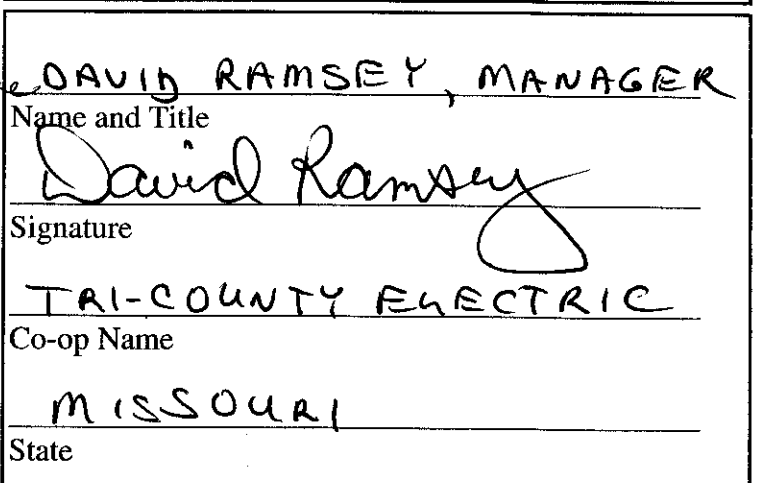 DAVID RAMSEY, MANAGER
Name and Title
David Ramsey
Signature
TRI-COUNTY ELECTRIC
Co-op Name
MISSOURI
State